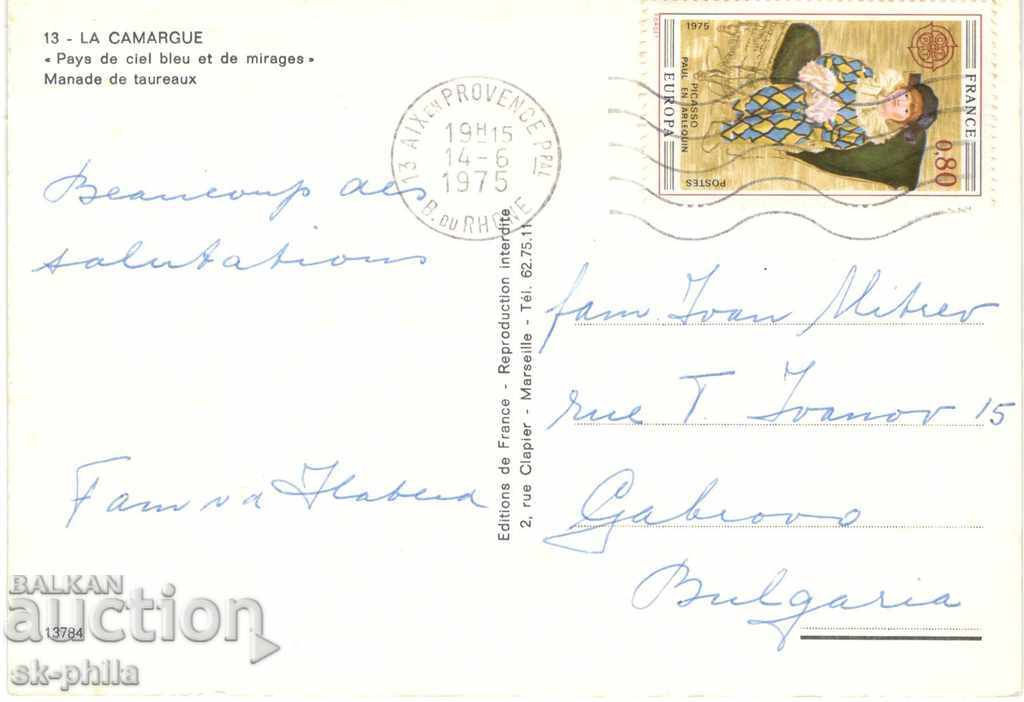 13 - LA CAMARGUE
« Pays de ciel bleu et de mirages »
Manade de taureaux
Beaucoup des
salutations
Fam v d
13 AIX EN PROVENCE PPAL
19H15
14-6
1975
B. DU RHONE
1975
PICASSO
PAUL EN ARLEQUIN
EUROPA
POSTES
FRANCE
0,80
Editions de France - Reproduction interdite
2, rue Clapier - Marseille - Tél. 62.75.11
fam Ivan Mitrev
rue T. Ivanov 15
Gabrovo
Bulgaria
BALKAN
auction
13784
sk-phila